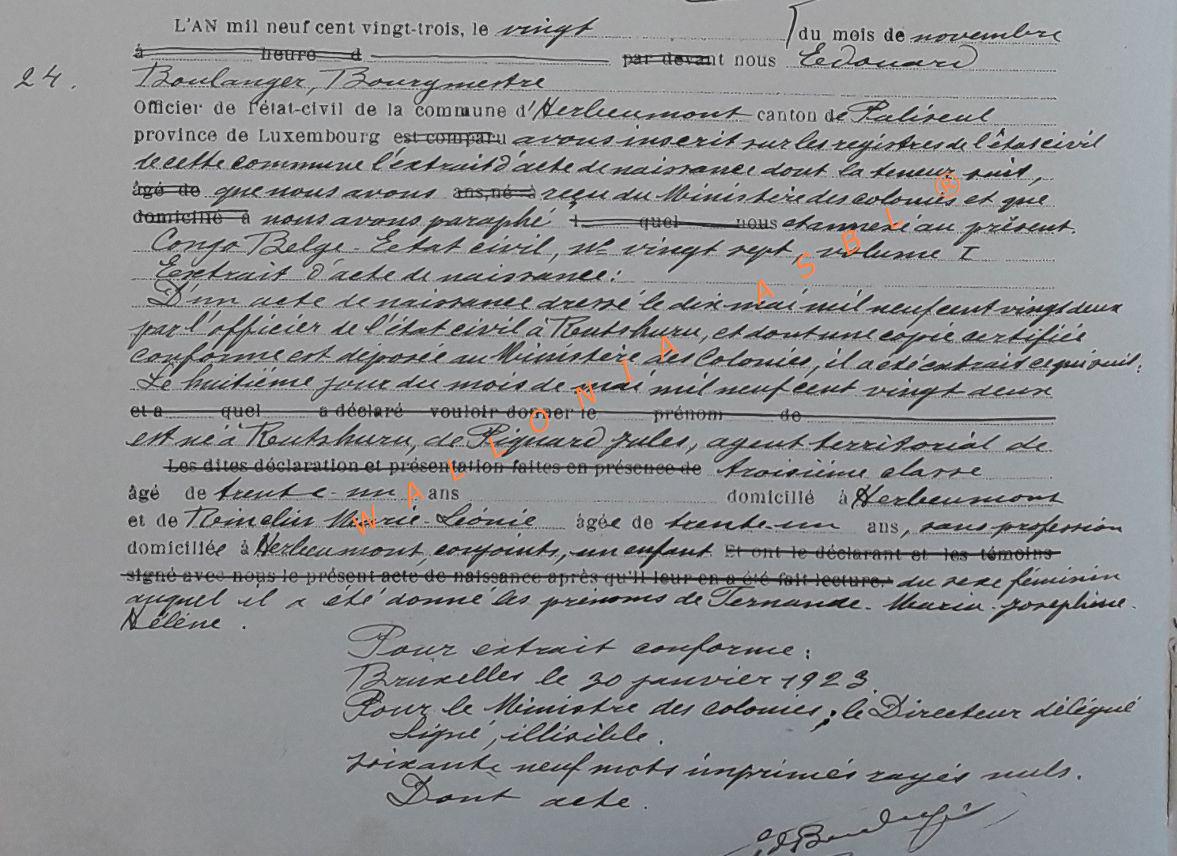 L'AN mil neuf cent vingt-trois, le vingt du mois de novembre
à heure d par devant nous Edouard
24. Boulanger, Bourgmestre
Officier de l'état-civil de la commune d'Herbeumont canton de Paliseul
province de Luxembourg est comparu avons inscrit sur les registres de l'état civil
de cette commune l'extrait d'acte de naissance dont la teneur suit,
âgé de que nous avons ans, né à reçu du Ministère des colonies et que
domicilié à nous avons paraphé l quel nous et annexé au présent.
Congo Belge - Etat civil, n° vingt sept, volume I
Extrait d'acte de naissance :
D'un acte de naissance dressé le dix mai mil neuf cent vingt deux
par l'officier de l'état civil à Rutshuru, et dont une copie certifiée
conforme est déposée au Ministère des Colonies, il a été extrait ce qui suit :
Le huitième jour du mois de mai mil neuf cent vingt deux
et a quel a déclaré vouloir donner le prénom de
est né à Rutshuru, de Pignard Jules, agent territorial de
Les dites déclaration et présentation faites en présence de troisième classe
âgé de trente-un ans domicilié à Herbeumont
et de Marie-Léonie âgée de trente-un ans, sans profession
domiciliée à Herbeumont, conjoints, un enfant Et ont le déclarant et les témoins
signé avec nous le présent acte de naissance après qu'il leur en a été fait lecture. du sexe féminin
auquel il a été donné les prénoms de Fernande-Maria-Joséphine-
Hélène.
Pour extrait conforme :
Bruxelles le 30 janvier 1923.
Pour le Ministre des colonies, le Directeur délégué
Signé, illisible.
soixante neuf mots imprimés rayés nuls.
Dont acte.
WALLONIA ASBL ®